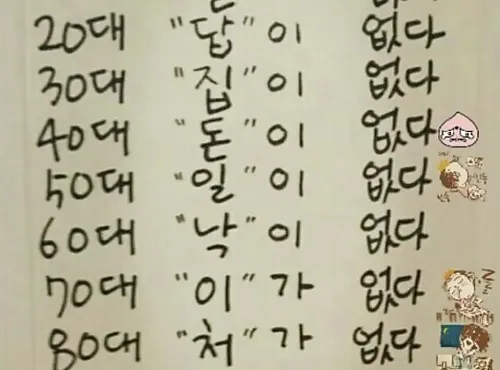 20대 "답"이 없다
30대 "집"이 없다
40대 "돈"이 없다
50대 "일"이 없다
60대 "낙"이 없다
70대 "이"가 없다
80대 "처"가 없다